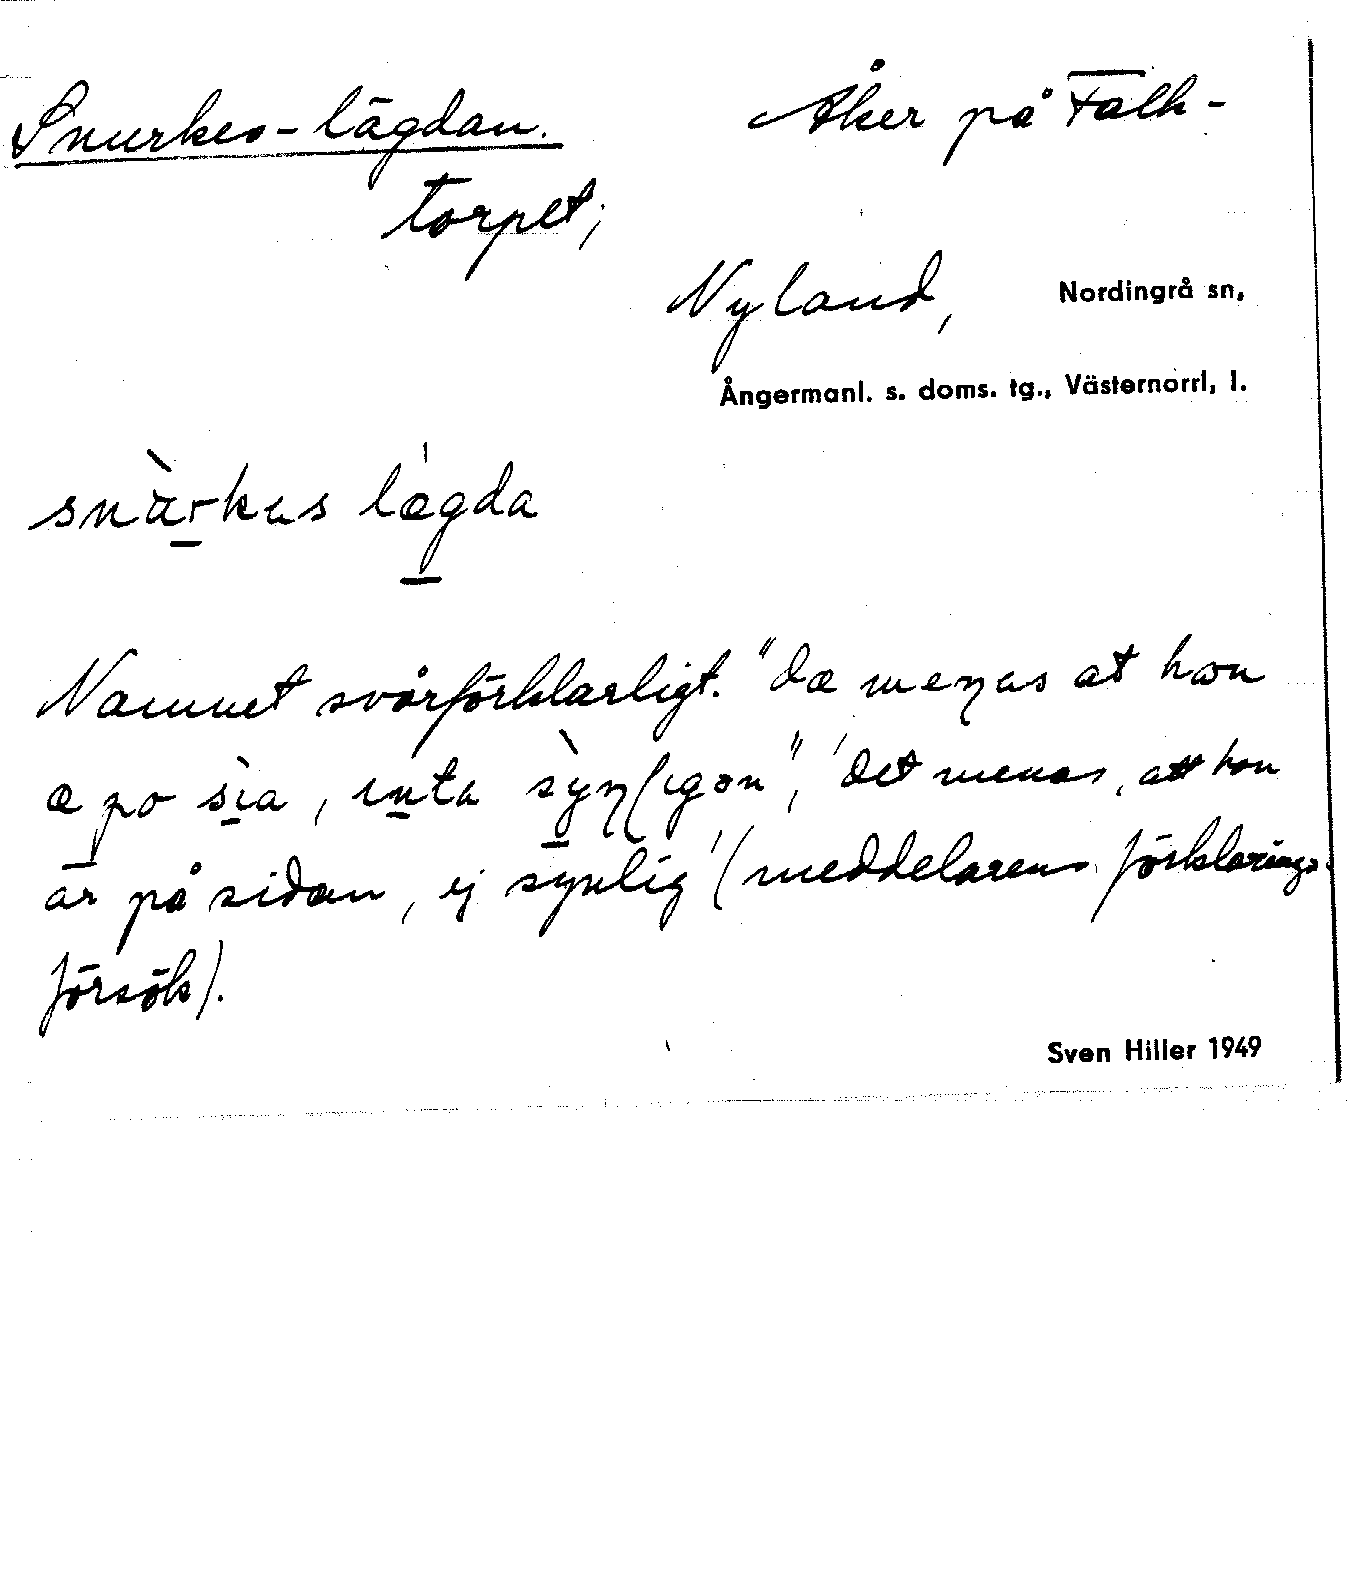 Snurkes-lägdan. Åker på Falk-
torpet;
Nyland, Nordingrå sn,
Ångermanl. s. doms. tg., Västernorrl, l.
snàrkas lægda
Namnet svårförklarligt. "dæ menas at hon
æ po sìa, ınta sỳnlıgon", 'det menas, att hon
är på sidan, ej synlig' (meddelarens förklarings-
försök).
Sven Hiller 1949